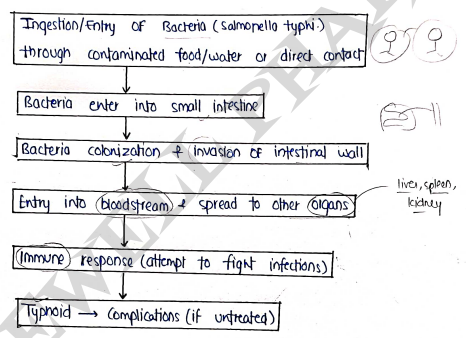 Ingestion/Entry of Bacteria (Salmonella typhi.)
through contaminated food/water or direct contact
Bacteria enter into small intestine
Bacteria colonization & invasion of intestinal wall
Entry into bloodstream & spread to other organs
liver, spleen,
kidney
Immune response (attempt to fight infections)
Typhoid → Complications (if untreated)